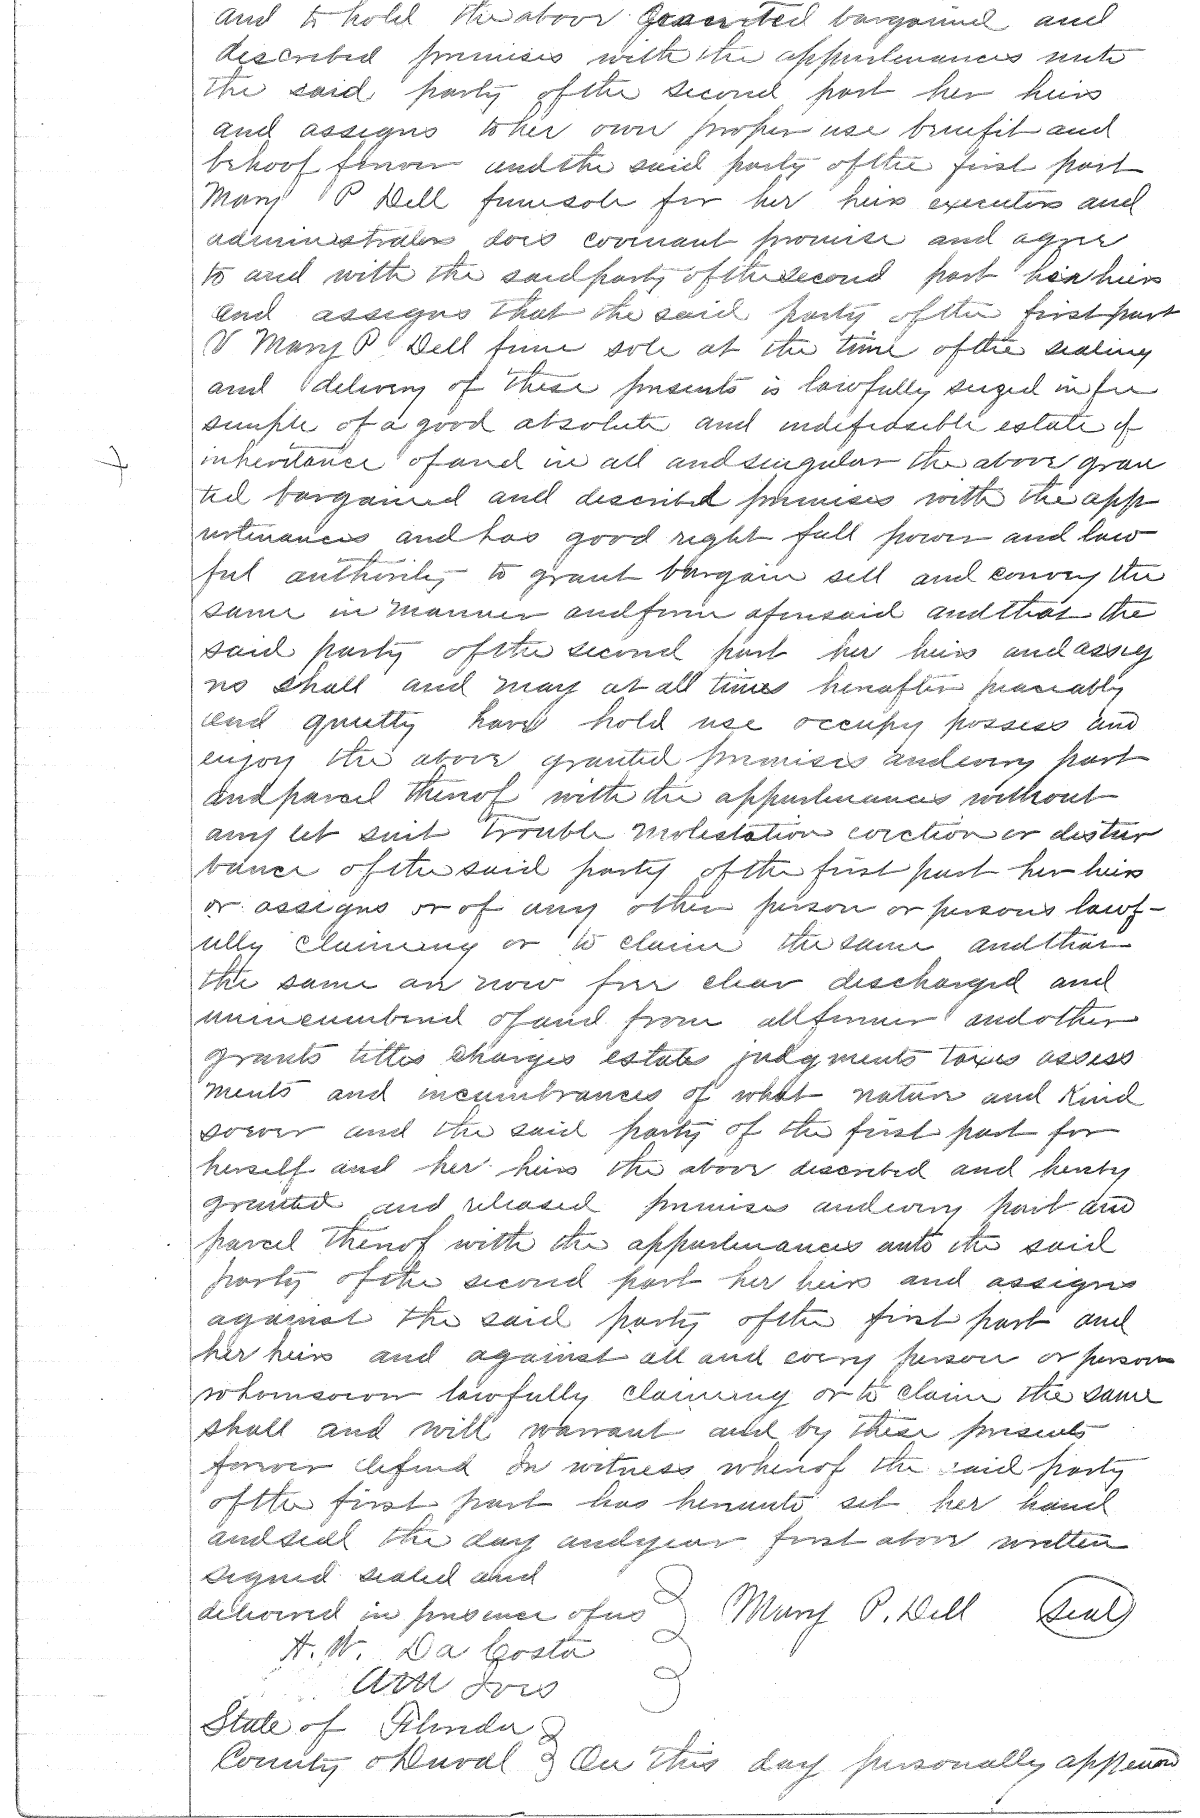 and to hold the above Granted bargained and
described premises with the appurtenances unto
the said party of the second part her heirs
and assigns to her own proper use benefit and
behoof forever and the said party of the first part
Mary P Dell feme sole for her heirs executors and
administrators does covenant promise and agree
to and with the said party of the second part her heirs
and assigns that the said party of the first part
V Mary P Dell feme sole at the time of the sealing
and delivery of these presents is lawfully seized in fee
simple of a good absolute and indefeasible estate of
inheritance of and in all and singular the above gran
ted bargained and described premises with the app
urtenances and has good right full power and law
ful authority to grant bargain sell and convey the
same in manner and form aforesaid and that the
said party of the second part her heirs and assig
ns shall and may at all times hereafter peaceably
and quietly have hold use occupy possess and
enjoy the above granted premises and every part
and parcel thereof with the appurtenances without
any let suit trouble molestation eviction or distur
bance of the said party of the first part her heirs
or assigns or of any other person or persons lawf-
ully claiming or to claim the same and that
the same are now free clear discharged and
unincumbered of and from all former and other
grants titles charges estates judgments taxes assess
ments and incumbrances of what nature and kind
soever and the said party of the first part for
herself and her heirs the above described and hereby
granted and released premises and every part and
parcel thereof with the appurtenances unto the said
party of the second part her heirs and assigns
against the said party of the first part and
her heirs and against all and every person or persons
whomsoever lawfully claiming or to claim the same
shall and will warrant and by these presents
forever defend In witness whereof the said party
of the first part has hereunto set her hand
and seal the day and year first above written
signed sealed and
delivered in presence of us Mary P. Dell Seal
A. W. Da Costa
State of Florida
County o Duval On this day personally appeared